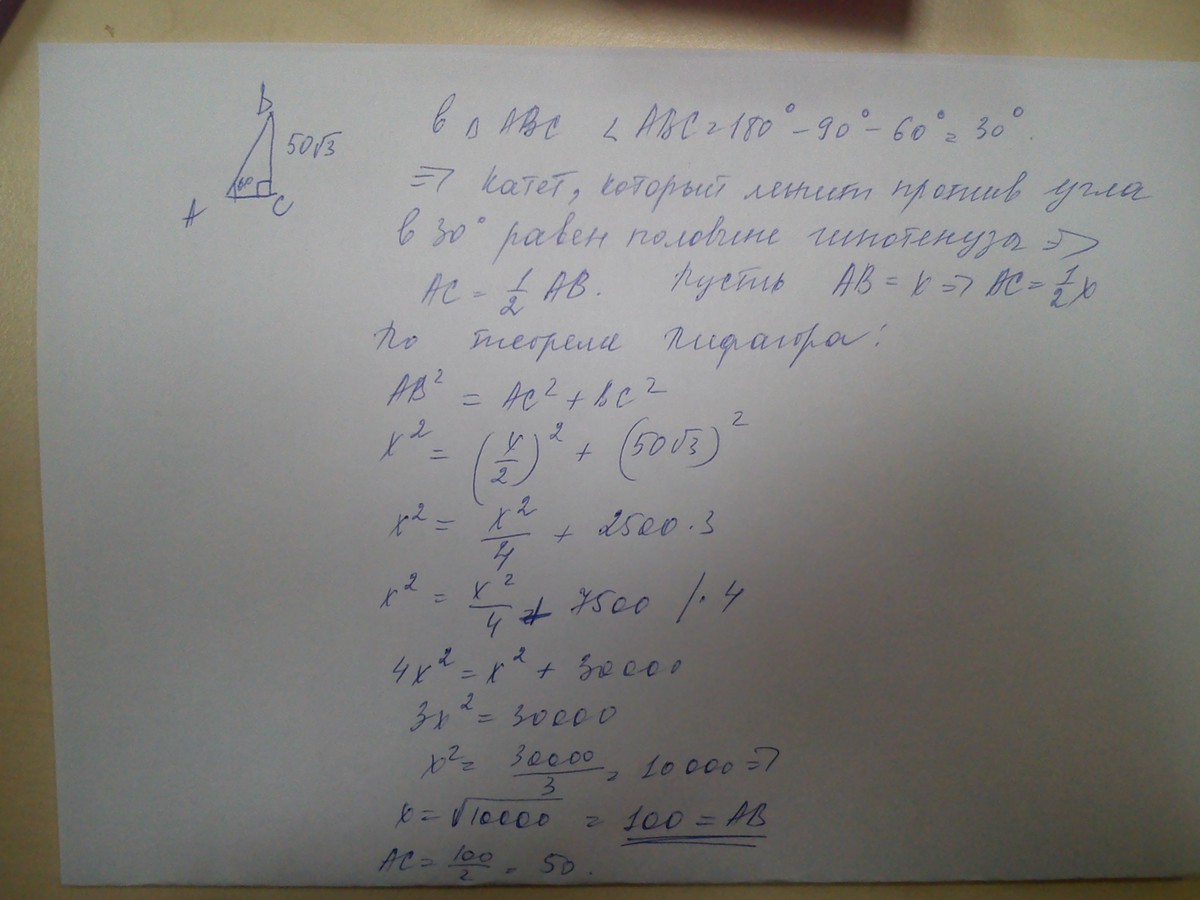 B
50√3
60°
A
C
В △ ABC ∠ ABC = 180° - 90° - 60° = 30°.
=> Катет, который лежит против угла
в 30° равен половине гипотенузы =>
AC = 1/2 AB. Пусть AB = x => AC = 1/2 x
По теореме Пифагора:
AB² = AC² + BC²
x² = (x/2)² + (50√3)²
x² = x²/4 + 2500 · 3
x² = x²/4 + 7500 / · 4
4x² = x² + 30000
3x² = 30000
x² = 30000/3 = 10000 =>
x = √10000 = 100 = AB
AC = 100/2 = 50.